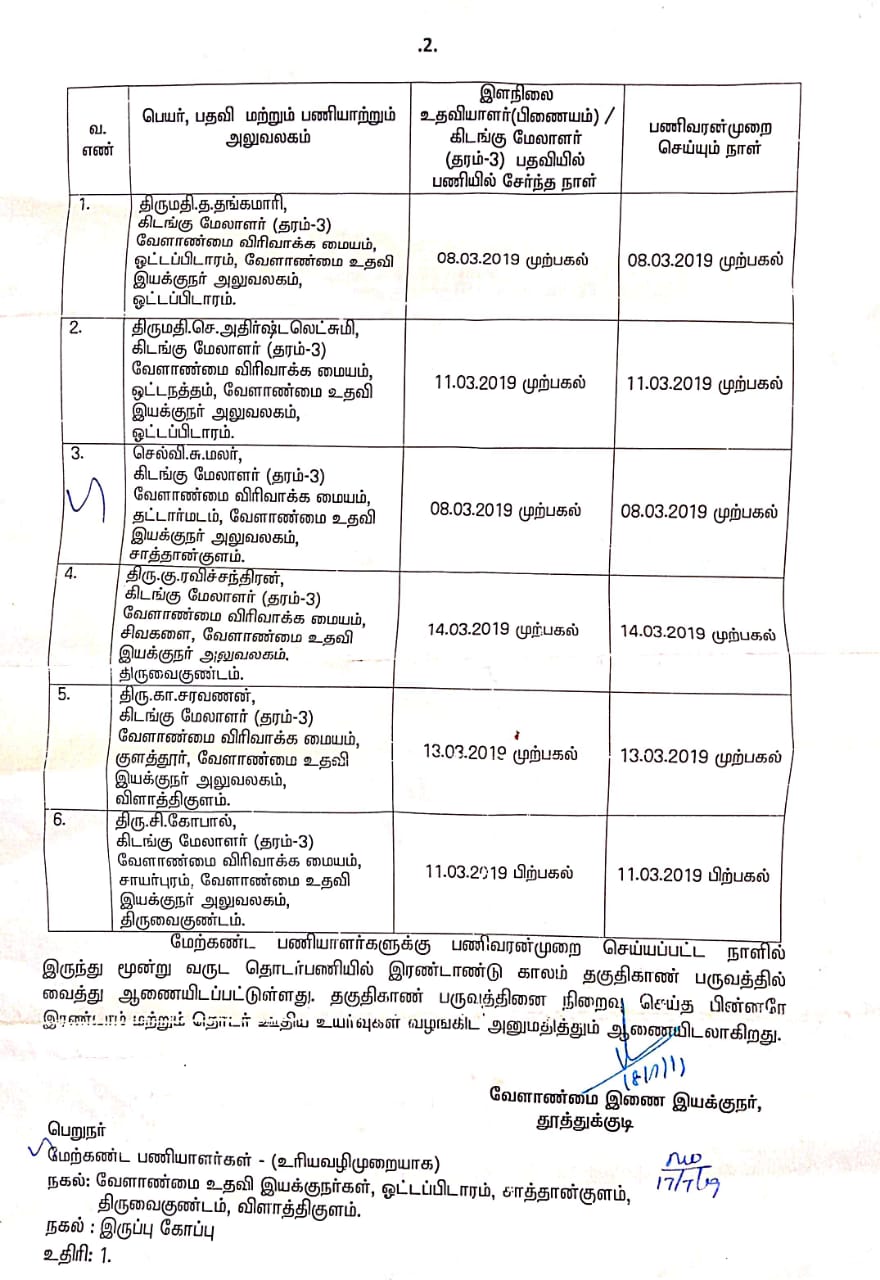 .2.
வ.
எண்
பெயர், பதவி மற்றும் பணியாற்றும்
அலுவலகம்
இளநிலை
உதவியாளர்(பிணையம்) /
கிடங்கு மேலாளர்
(தரம்-3) பதவியில்
பணியில் சேர்ந்த நாள்
பணிவரன்முறை
செய்யும் நாள்
1.
திருமதி.த.தங்கமாரி,
கிடங்கு மேலாளர் (தரம்-3)
வேளாண்மை விரிவாக்க மையம்,
ஒட்டப்பிடாரம், வேளாண்மை உதவி
இயக்குநர் அலுவலகம்,
ஒட்டப்பிடாரம்.
08.03.2019 முற்பகல்
08.03.2019 முற்பகல்
2.
திருமதி.செ.அதிர்ஷ்டலெட்சுமி,
கிடங்கு மேலாளர் (தரம்-3)
வேளாண்மை விரிவாக்க மையம்,
ஒட்டநத்தம், வேளாண்மை உதவி
இயக்குநர் அலுவலகம்,
ஒட்டப்பிடாரம்.
11.03.2019 முற்பகல்
11.03.2019 முற்பகல்
3.
செல்வி.சு.மலர்,
கிடங்கு மேலாளர் (தரம்-3)
வேளாண்மை விரிவாக்க மையம்,
தட்டார்மடம், வேளாண்மை உதவி
இயக்குநர் அலுவலகம்,
சாத்தான்குளம்.
08.03.2019 முற்பகல்
08.03.2019 முற்பகல்
4.
திரு.கு.ரவிச்சந்திரன்,
கிடங்கு மேலாளர் (தரம்-3)
வேளாண்மை விரிவாக்க மையம்,
சிவகளை, வேளாண்மை உதவி
இயக்குநர் அலுவலகம்.
திருவைகுண்டம்.
14.03.2019 முற்பகல்
14.03.2019 முற்பகல்
5.
திரு.கா.சரவணன்,
கிடங்கு மேலாளர் (தரம்-3)
வேளாண்மை விரிவாக்க மையம்,
குளத்தூர், வேளாண்மை உதவி
இயக்குநர் அலுவலகம்,
விளாத்திகுளம்.
13.03.2019 முற்பகல்
13.03.2019 முற்பகல்
6.
திரு.சி.கோபால்,
கிடங்கு மேலாளர் (தரம்-3)
வேளாண்மை விரிவாக்க மையம்,
சாயர்புரம், வேளாண்மை உதவி
இயக்குநர் அலுவலகம்,
திருவைகுண்டம்.
11.03.2019 பிற்பகல்
11.03.2019 பிற்பகல்
மேற்கண்ட பணியாளர்களுக்கு பணிவரன்முறை செய்யப்பட்ட நாளில்
இருந்து மூன்று வருட தொடர்பணியில் இரண்டாண்டு காலம் தகுதிகாண் பருவத்தில்
வைத்து ஆணையிடப்பட்டுள்ளது. தகுதிகாண் பருவத்தினை நிறைவு செய்த பின்னரே
இரண்டாம் மற்றும் தொடர் ஊதிய உயர்வுகள் வழங்கிட அனுமதித்தும் ஆணையிடலாகிறது.
வேளாண்மை இணை இயக்குநர்,
தூத்துக்குடி
பெறுநர்
மேற்கண்ட பணியாளர்கள் - (உரியவழிமுறையாக)
நகல்: வேளாண்மை உதவி இயக்குநர்கள், ஓட்டப்பிடாரம், சாத்தான்குளம்,
திருவைகுண்டம், விளாத்திகுளம்.
நகல் : இருப்பு கோப்பு
உதிரி: 1.
17/7/19